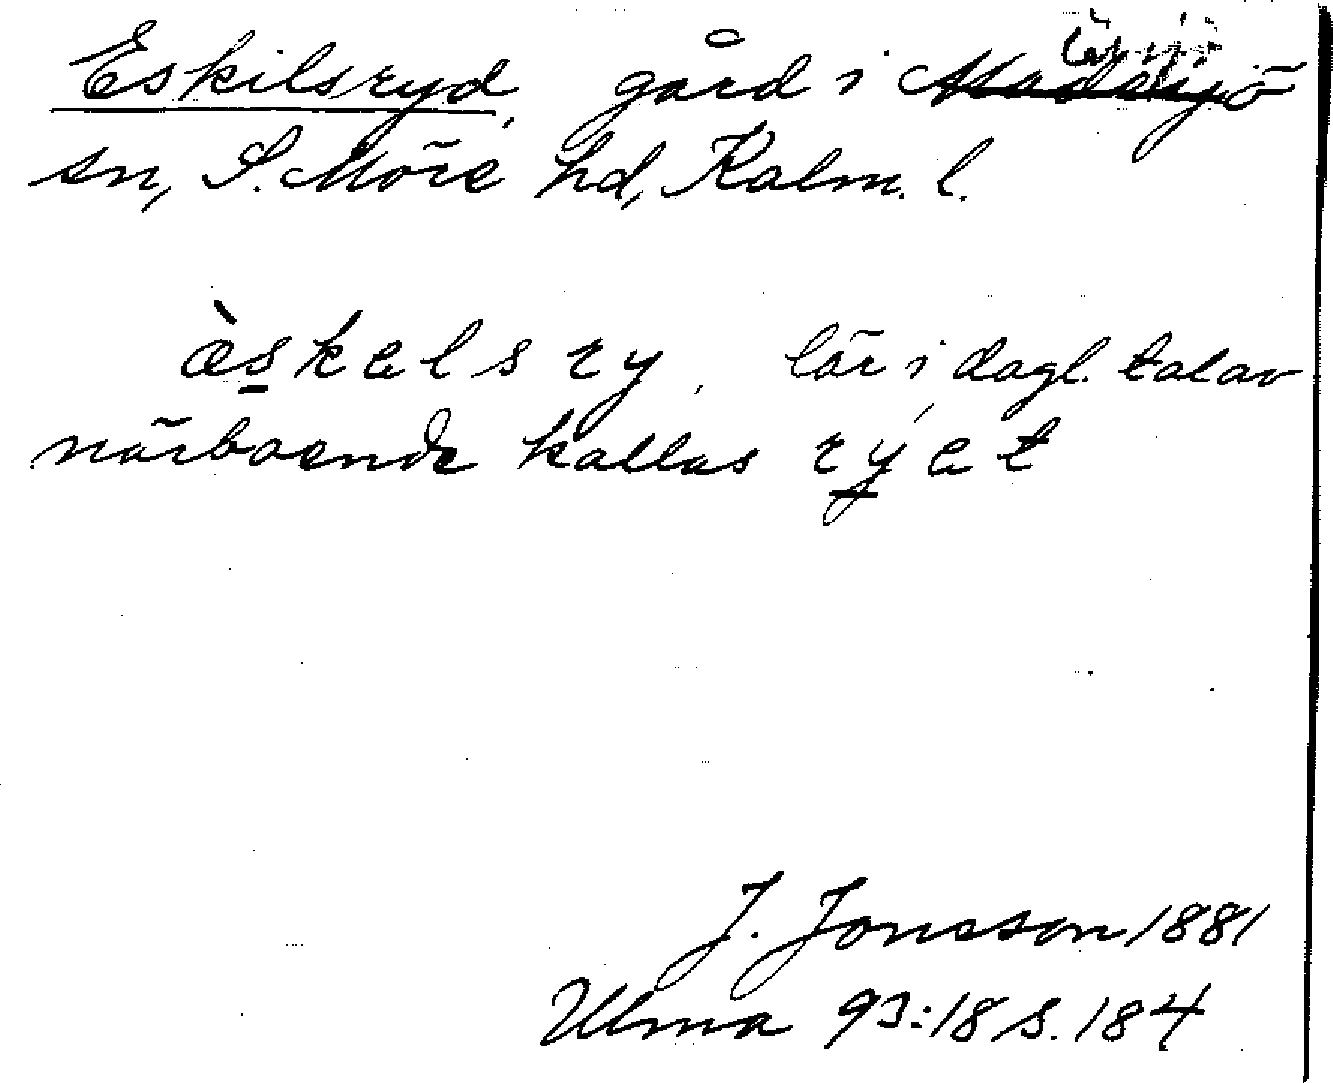 Eskilsryd, gård i Madesjö
sn, S. Möre hd, Kalm. l.
æ̀skelsry, lär i dagl. tal av
närboende kallas rýet
J. Jonsson 1881
Ulma 93:18 s. 184